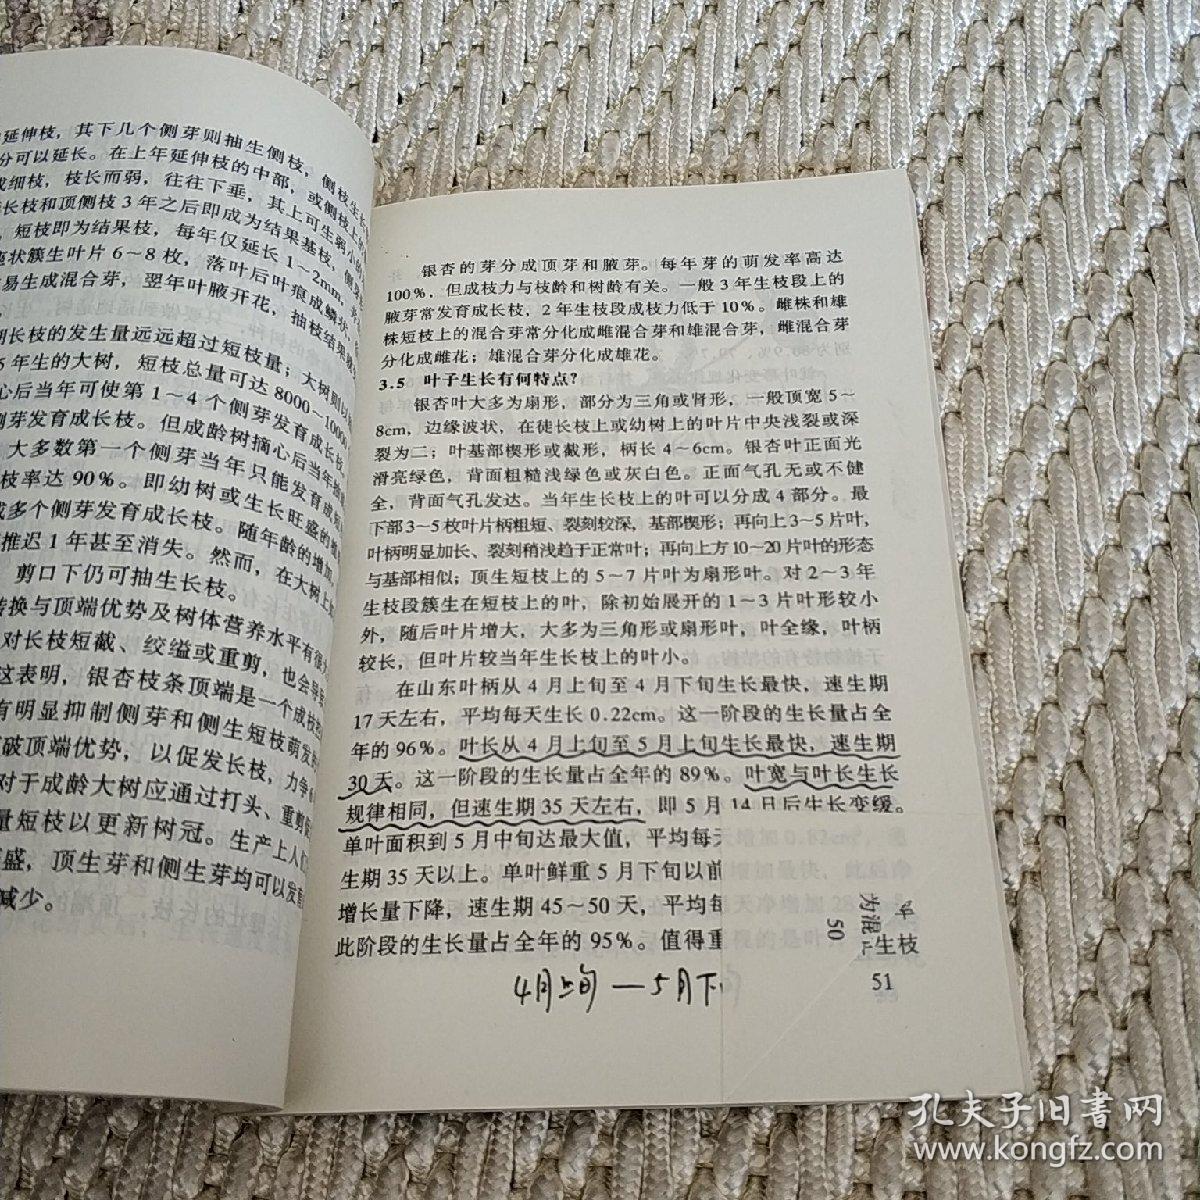 延伸枝，其下几个侧芽则抽生侧枝，侧枝生
分可以延长。在上年延伸枝的中部，或侧枝上的
成细枝，枝长而弱，往往下垂，其上可生弱小的
长枝和顶侧枝3年之后即成为结果基枝，侧
，短枝即为结果枝，每年仅延长1～2mm，
状簇生叶片6～8枚，落叶后叶痕成鳞状，
易生成混合芽，翌年叶腋开花，抽枝结果
期长枝的发生量远远超过短枝量；大树则以
年生的大树，短枝总量可达8000～10000
心后当年可使第1～4个侧芽发育成长枝
侧芽发育成长枝。但成龄树摘心后当年
大多数第一个侧芽当年只能发育成
枝率达90%。即幼树或生长旺盛的
或多个侧芽发育成长枝。随年龄的增加，
推迟1年甚至消失。然而，在大树上
剪口下仍可抽生长枝。
转换与顶端优势及树体营养水平有很大
对长枝短截、绞缢或重剪，也会导致
这表明，银杏枝条顶端是一个成枝
有明显抑制侧芽和侧生短枝萌发
破顶端优势，以促发长枝，力争
对于成龄大树应通过打头、重剪
量短枝以更新树冠。生产上人们
盛，顶生芽和侧生芽均可以发育
减少。
银杏的芽分成顶芽和腋芽。每年芽的萌发率高达
100%，但成枝力与枝龄和树龄有关。一般3年生枝段上的
腋芽常发育成长枝，2年生枝段成枝力低于10%。雌株和雄
株短枝上的混合芽常分化成雌混合芽和雄混合芽，雌混合芽
分化成雌花；雄混合芽分化成雄花。
3.5 叶子生长有何特点？
银杏叶大多为扇形，部分为三角或肾形，一般顶宽5～
8cm，边缘波状，在徒长枝上或幼树上的叶片中央浅裂或深
裂为二；叶基部楔形或截形，柄长4～6cm。银杏叶正面光
滑亮绿色，背面粗糙浅绿色或灰白色。正面气孔无或不健
全，背面气孔发达。当年生长枝上的叶可以分成4部分。最
下部3～5枚叶片柄粗短、裂刻较深，基部楔形；再向上3～5片叶，
叶柄明显加长、裂刻稍浅趋于正常叶；再向上方10～20片叶的形态
与基部相似；顶生短枝上的5～7片叶为扇形叶。对2～3年
生枝段簇生在短枝上的叶，除初始展开的1～3片叶形较小
外，随后叶片增大，大多为三角形或扇形叶，叶全缘，叶柄
较长，但叶片较当年生长枝上的叶小。
在山东叶柄从4月上旬至4月下旬生长最快，速生期
17天左右，平均每天生长0.22cm。这一阶段的生长量占全
年的96%。叶长从4月上旬至5月上旬生长最快，速生期
30天。这一阶段的生长量占全年的89%。叶宽与叶长生长
规律相同，但速生期35天左右，即5月14日后生长变缓。
单叶面积到5月中旬达最大值，平均每天
生期35天以上。单叶鲜重5月下旬以前
增长量下降，速生期45～50天，平均每
此阶段的生长量占全年的95%。值得重
生枝
50
51
4月上旬—5月下旬
孔夫子旧书网
www.kongfz.com